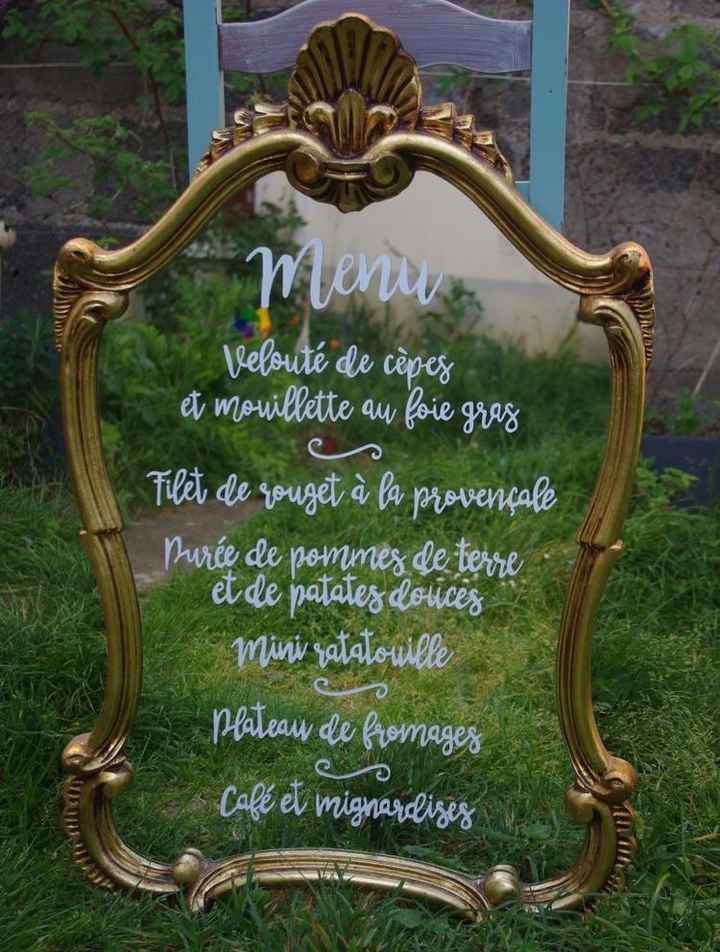 Menu
Velouté de cèpes
et mouillette au foie gras
Filet de rouget à la provençale
Purée de pommes de terre
et de patates douces
Mini ratatouille
Plateau de fromages
Café et mignardises